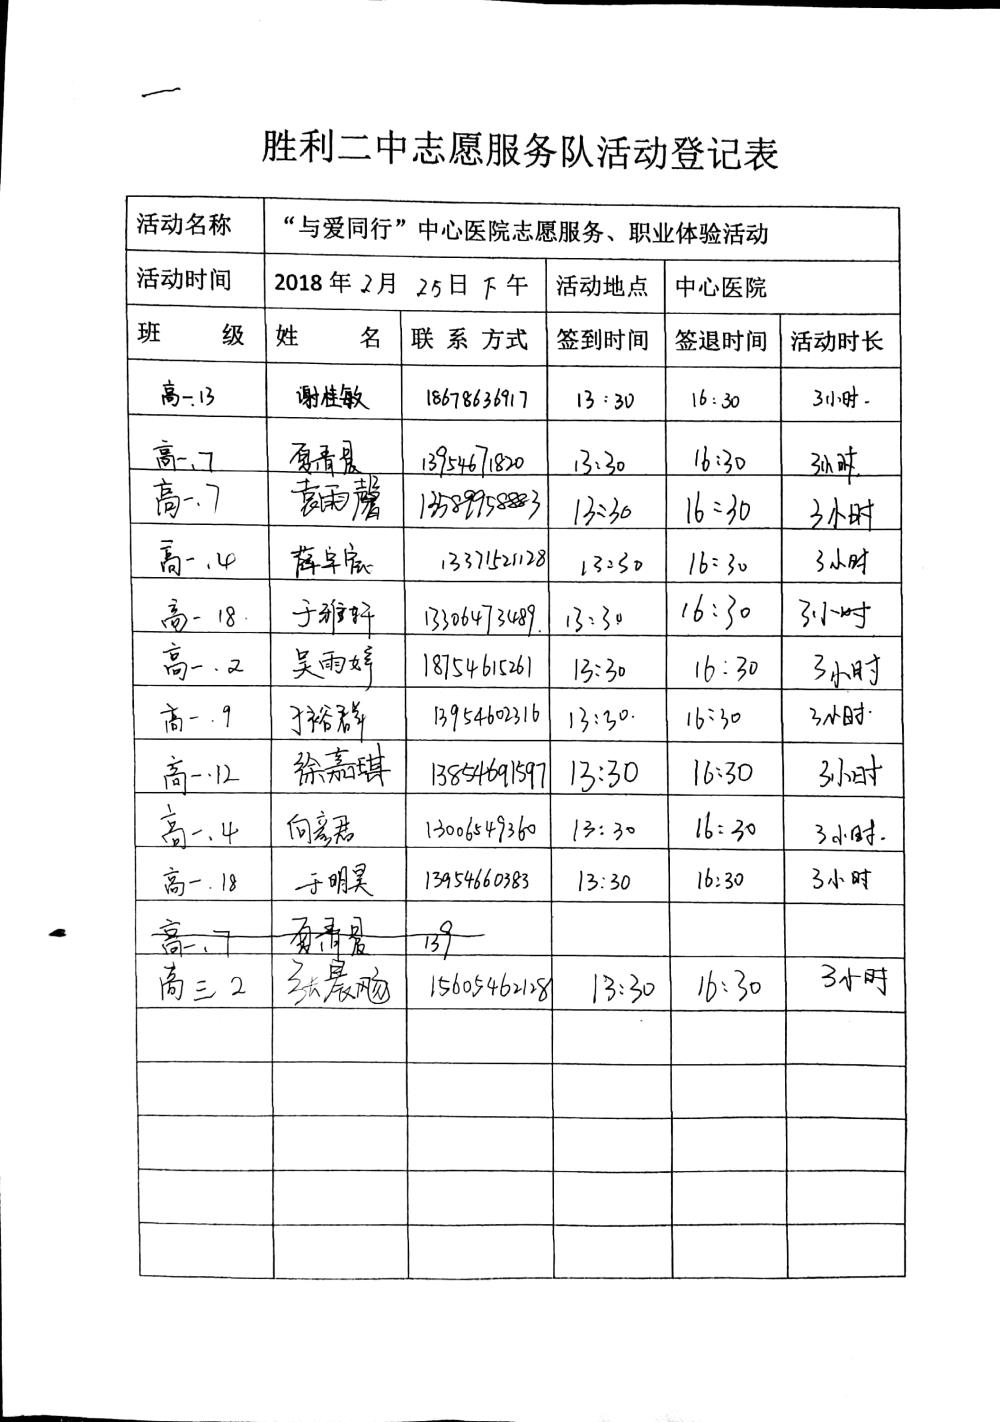 一
胜利二中志愿服务队活动登记表
活动名称 “与爱同行”中心医院志愿服务、职业体验活动
活动时间 2018年2月25日下午 活动地点 中心医院
班 级 姓 名 联系方式 签到时间 签退时间 活动时长
高一.13 谢桂敏 18678636917 13:30 16:30 3小时.
高一.7 夏清晨 13954671820 13:30 16:30 3小时
高一.7 袁雨馨 13589958883 13:30 16:30 3小时
高一.4 薛卓宸 13371521128 13:30 16:30 3小时
高一18. 于雅轩 13306473489. 13:30 16:30 3小时
高一.2 吴雨婷 18754615261 13:30 16:30 3小时
高一.9 于裕群 13954602316 13:30. 16:30 3小时.
高一.12 徐嘉琪 13854691597 13:30 16:30 3小时
高一.4 向彦君 13006549360 13:30 16:30 3小时.
高一.18 于明昊 13954660383 13:30 16:30 3小时
高一.7 夏清晨 139
高三2 张晨 15605462128 13:30 16:30 3小时